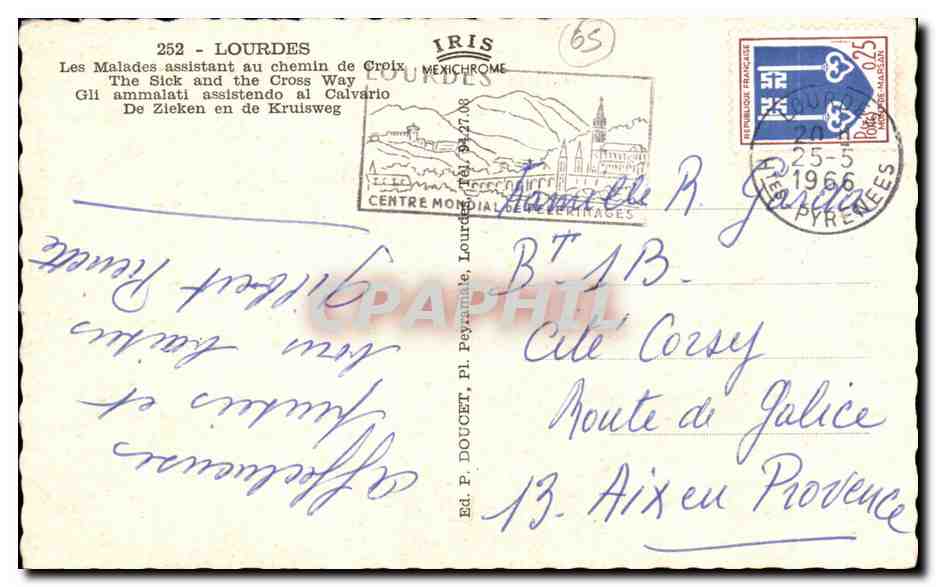 252 - LOURDES
Les Malades assistant au chemin de Croix
The Sick and the Cross Way
Gli ammalati assistendo al Calvario
De Zieken en de Kruisweg
IRIS
MEXICHROME
65
LOURDES
CENTRE MONDIAL DE PÈLERINAGES
REPUBLIQUE FRANÇAISE
0,25
POSTES
MONT-DE-MARSAN
LOURDES
20 H
25-5
1966
HTES PYRENEES
Ed. P. DOUCET, Pl. Peyramale, Lourdes Tél. 94.27.08
Affectueuses
pensées et
bons baisers
Gilbert Pierrette
Famille R.
BT 1B.
Cité Corsy
Route de Galice
13. Aix en Provence
CPAPHIL